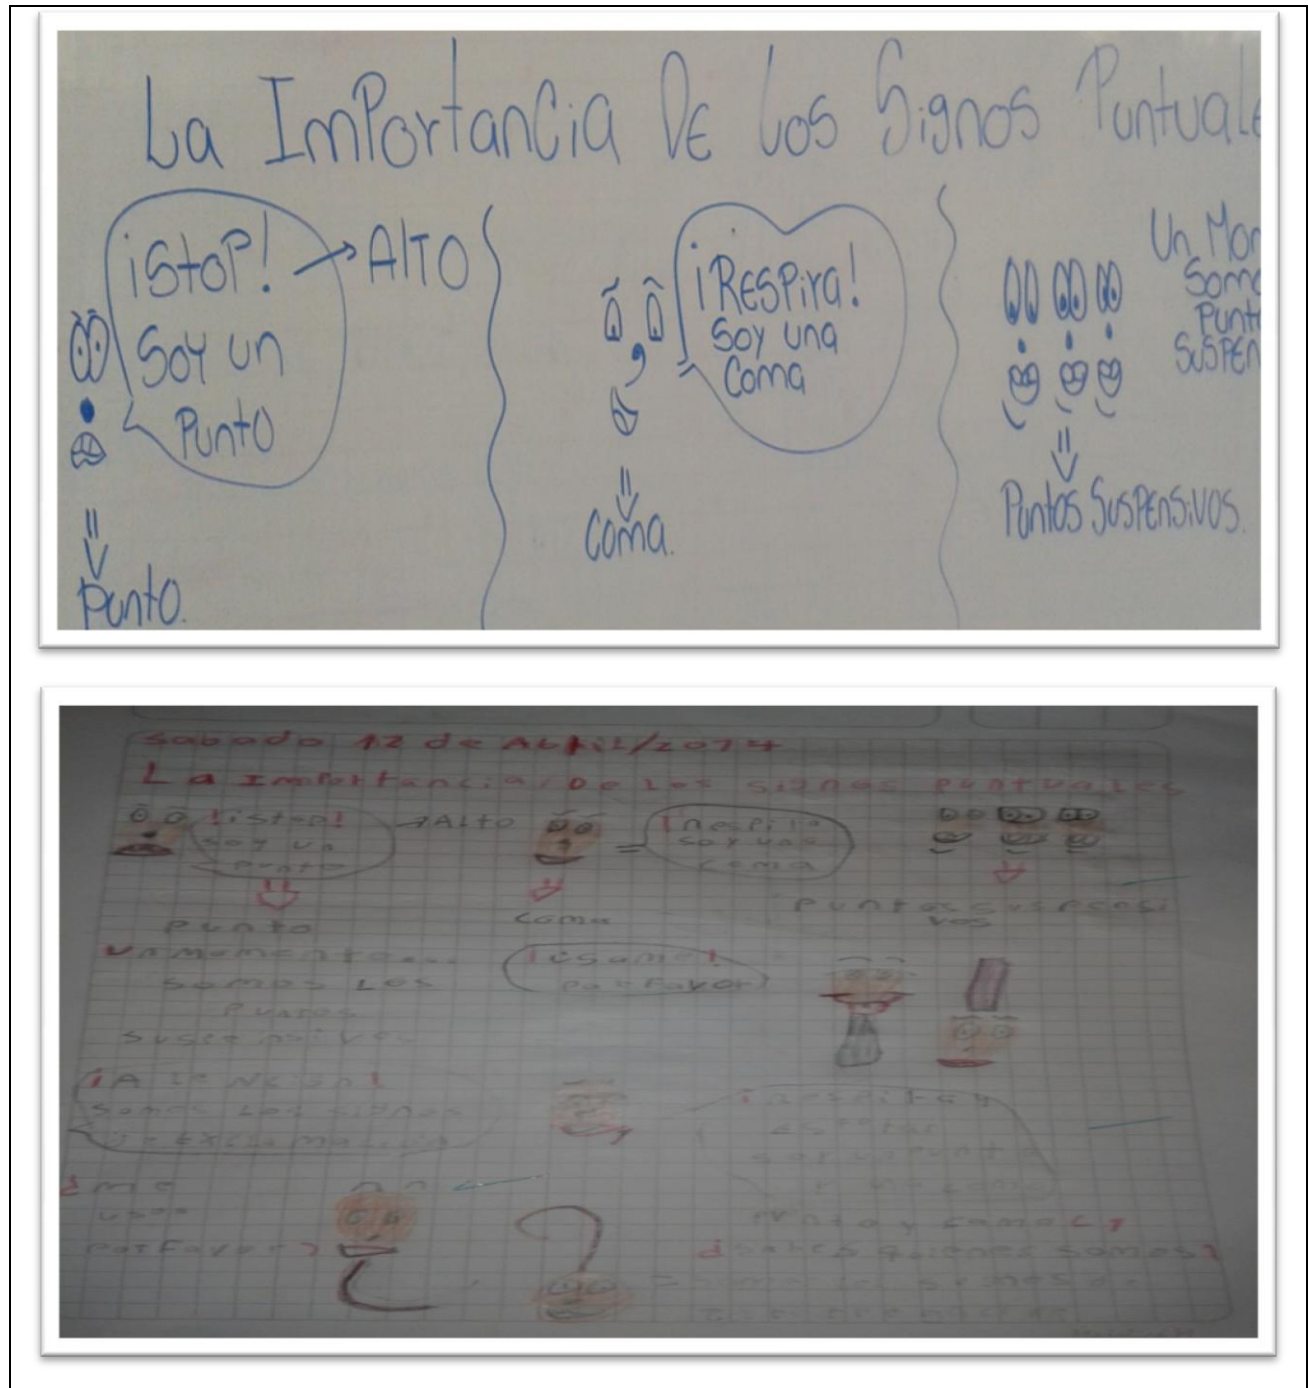 La Importancia De los Signos Puntuale
¡Stop! → Alto
Soy un
Punto
Punto.
¡Respira!
Soy una
Coma
Coma.
Un Mom
Somo
Punt
Suspen
Puntos Suspensivos.
Sabado 12 de Abril/2014
La Importancia De Los signos puntuales
¡istop! → Alto
soy un
punto
punto
¡Respira
soy una
coma
coma
puntos suspesi
vos
un momento...
somos Los
puntos
suspensivos
¡úsame!
por favor
¡Atencion!
somos Los signos
Exclamacion
¡Respira y
punto y coma (;
¿me
usas
por favor?
¿sabes quienes somos?